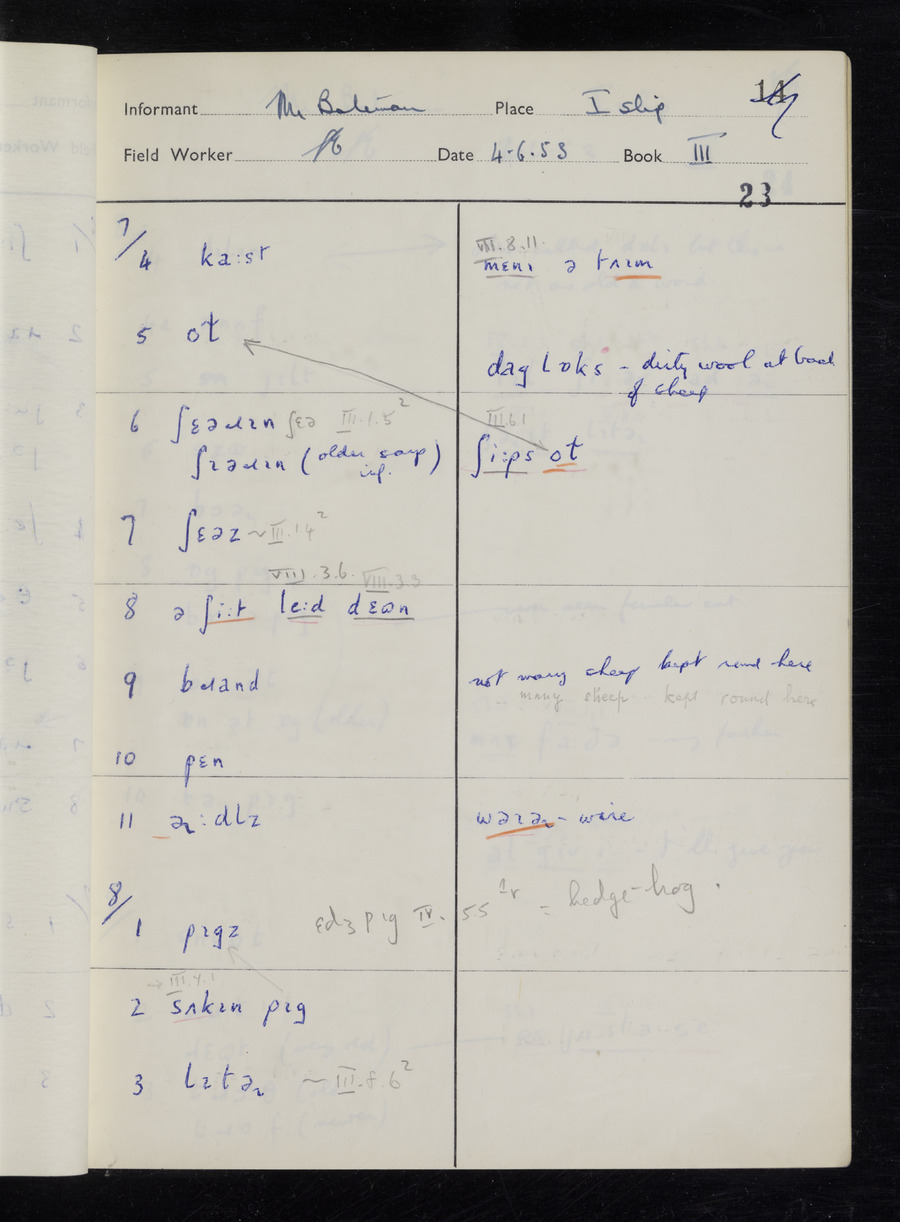 Informant Mr Bateman Place Islip 14
Field Worker Date 4.6.53 Book III
23
7/4 ka:st
VIII.8.11.
mɛnɪ ə tʌɪm
5 ɒt
dag lɒks - dirty wool at back
of sheep
6 ʃɛəɹɪn ʃɛə III.1.5²
ʃɪəɹɪn (older
III.6.1
ʃi:ps ɒt
7 ʃɛəz ~ III.14²
VIII.3.6. VIII.3.3
8 ə ʃi:t le:d dɛʊn
9 bɹand
not many sheep kept round here
many sheep kept round here
10 pɛn
11 ə˞:dlz
wəɪə˞ - wire
8/1 pɪgz
ɛdʒ pɪg IV. 55 1r = hedge-hog.
→ III.4.1
2 sʌkɪn pɪg
3 lɪtə˞ ~ III.8.6²